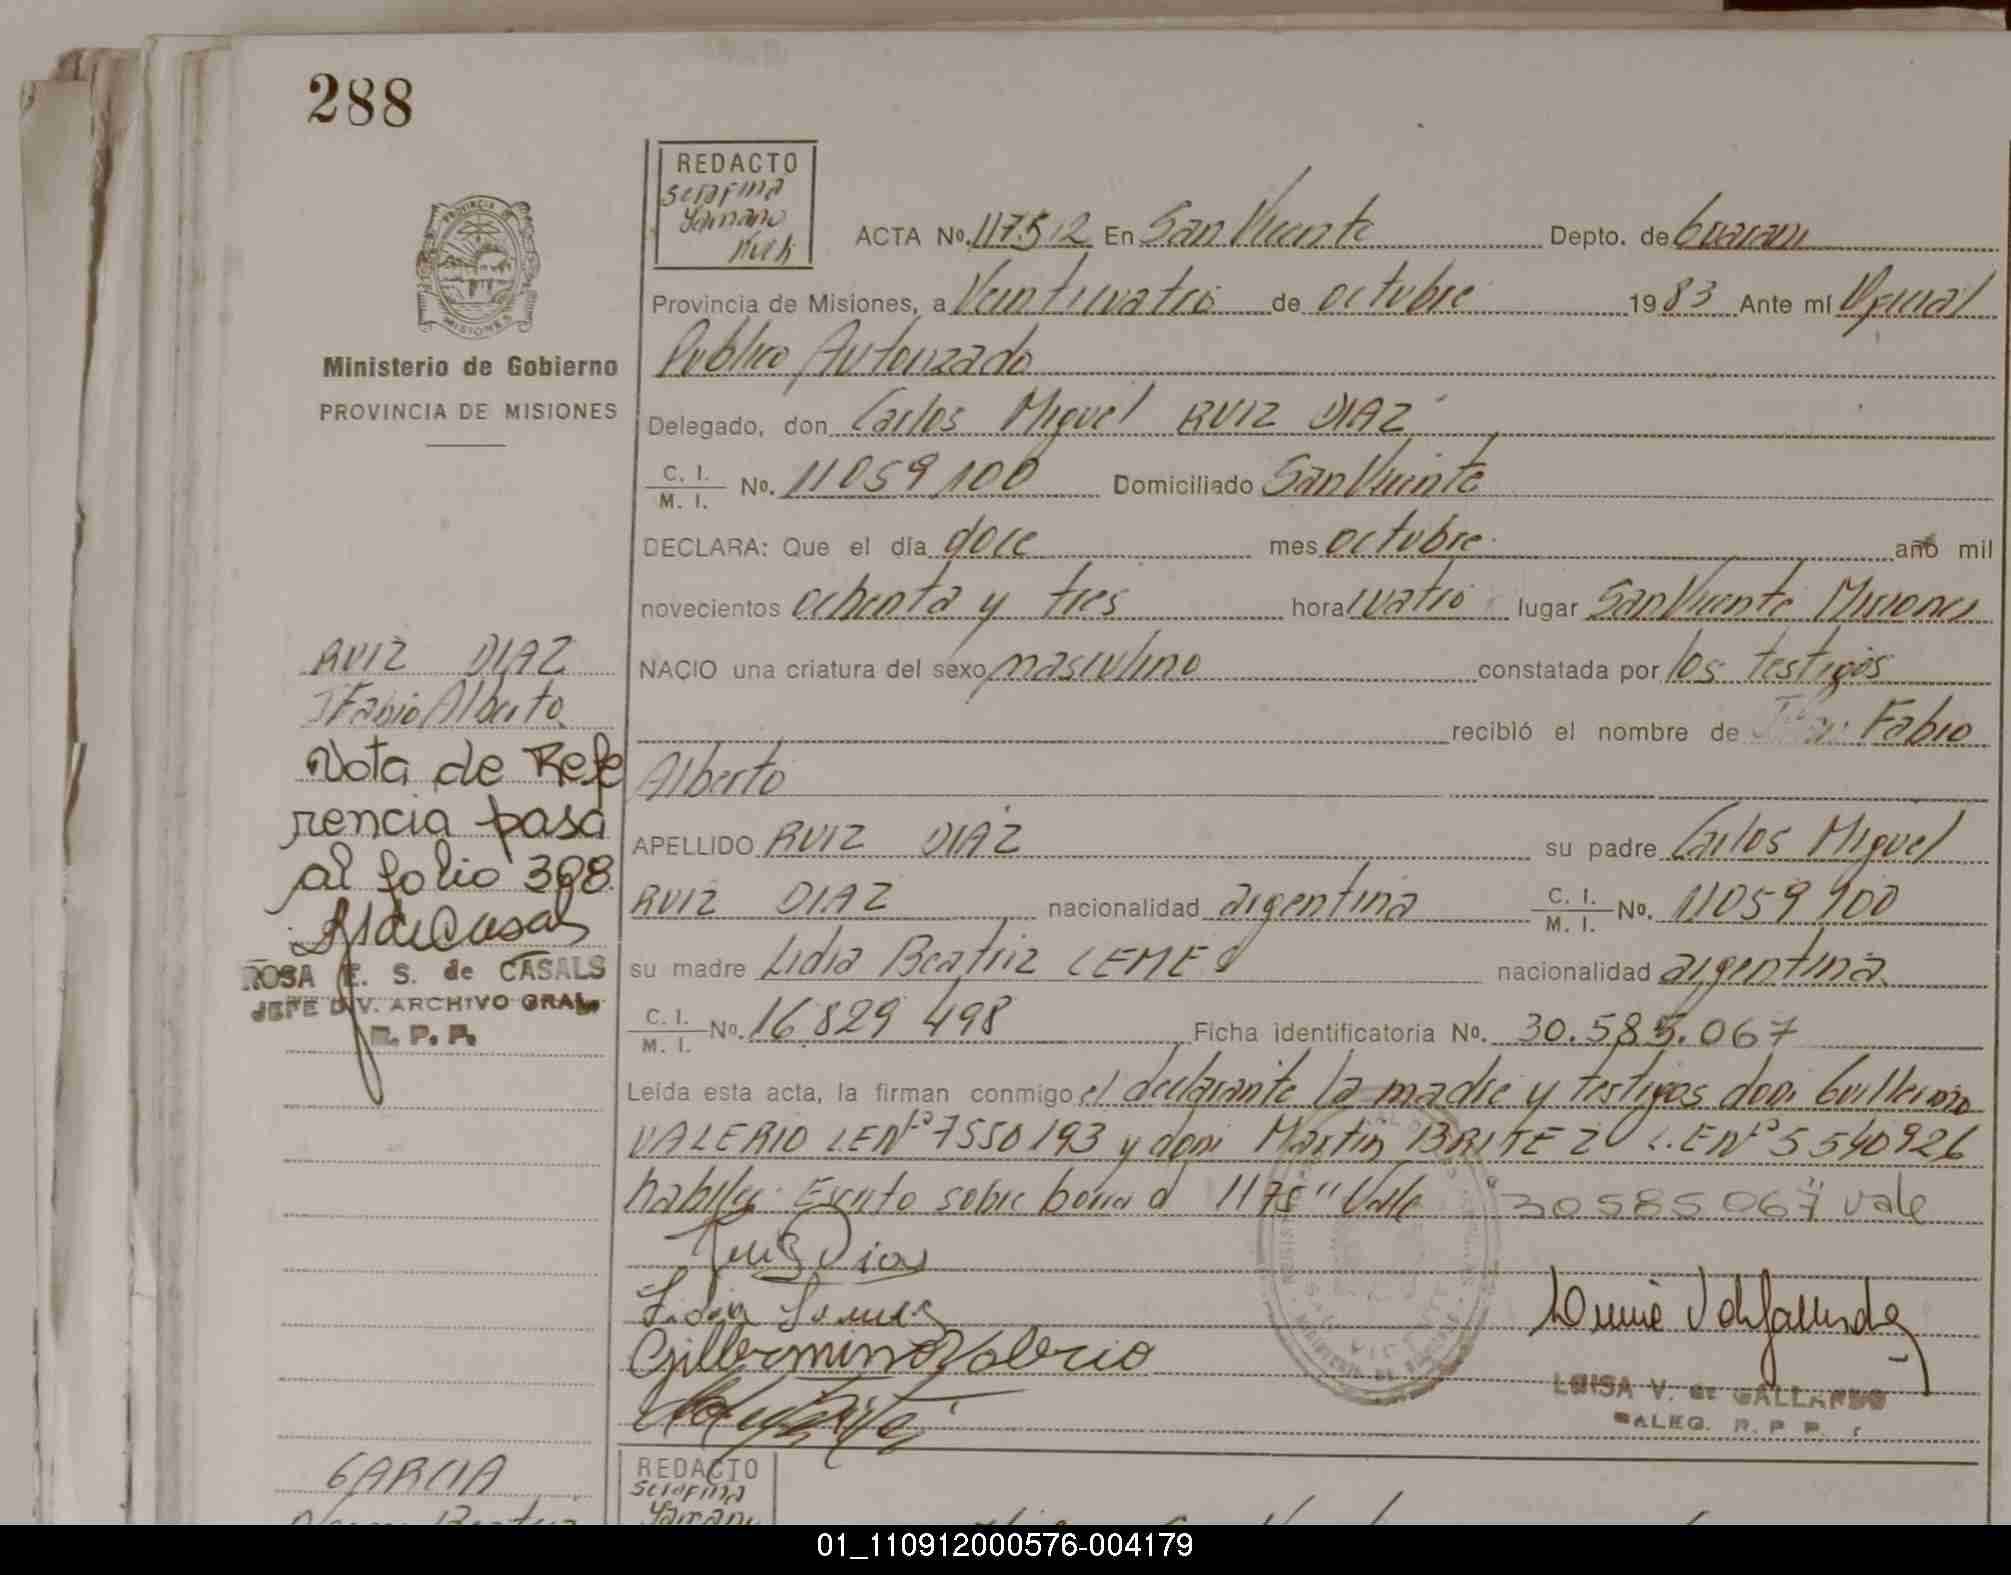 288
REDACTO
Serafina
PROVINCIA DE
MISIONES
ACTA No. 1175/2 En San Vicente Depto. de Guarani
Provincia de Misiones, a Veinticuatro de octubre 1983 Ante mí Oficial
Publico Autorizado
Ministerio de Gobierno
PROVINCIA DE MISIONES
Delegado, don Carlos Miguel RUIZ DIAZ
C. I. / M. I. No. 11059100 Domiciliado San Vicente
DECLARA: Que el día doce mes octubre año mil
novecientos ochenta y tres hora cuatro lugar San Vicente Misiones
NACIO una criatura del sexo masculino constatada por los testigos
recibió el nombre de Fabio
Alberto
APELLIDO RUIZ DIAZ su padre Carlos Miguel
RUIZ DIAZ nacionalidad argentina C. I. / M. I. No. 11059100
su madre Lidia Beatriz LEMES nacionalidad argentina
C. I. / M. I. No. 16829498 Ficha identificatoria No. 30.585.067
Leída esta acta, la firman conmigo el declarante la madre y testigos don Guillermino
VALERIO L.E Nº 7550193 y don Martin BRITEZ L.E Nº 5540926
habiles. Escrito sobre borrado 1175" Vale "30585067" vale
RUIZ DIAZ
Fabio Alberto
Nota de Refe
rencia pasa
al folio 308.
ROSA E. S. de CASALS
JEFE DIV. ARCHIVO GRAL.
R. P. P.
Ruiz Diaz
Lidia Lemes
Guillermino Valerio
LUISA V. de GALLARDO
DALEG. R. P. P.
GARCIA
REDACTO
Serafina
01_110912000576-004179